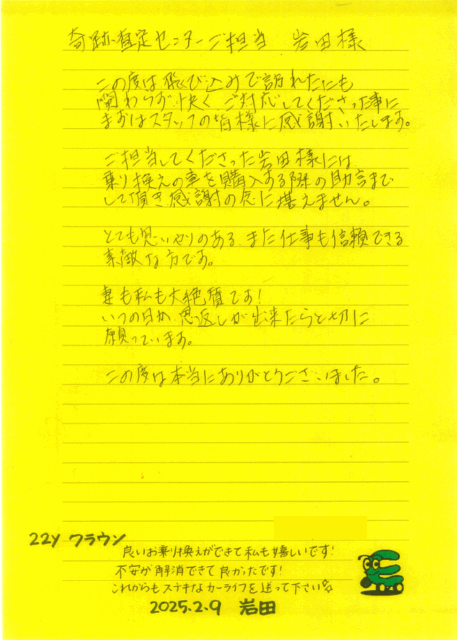 奇跡査定センターご担当 岩田様
この度は飛び込みで訪れたにも
関わらず快く、ご対応してくださった事に
まずはスタッフの皆様に感謝いたします。
ご担当してくださった岩田様には
乗り換えの車を購入する際の助言まで
して頂き感謝の念に堪えません。
とても思いやりのある、また仕事も信頼できる
素敵な方です。
妻も私も大絶賛です!
いつの日か、恩返しが出来たらと切に
願っています。
この度は本当にありがとうございました。
22Y クラウン
良いお乗り換えができて私も嬉しいです!
不安が解消できて良かったです!
これからもステキなカーライフを送って下さい☆
2025.2.9 岩田